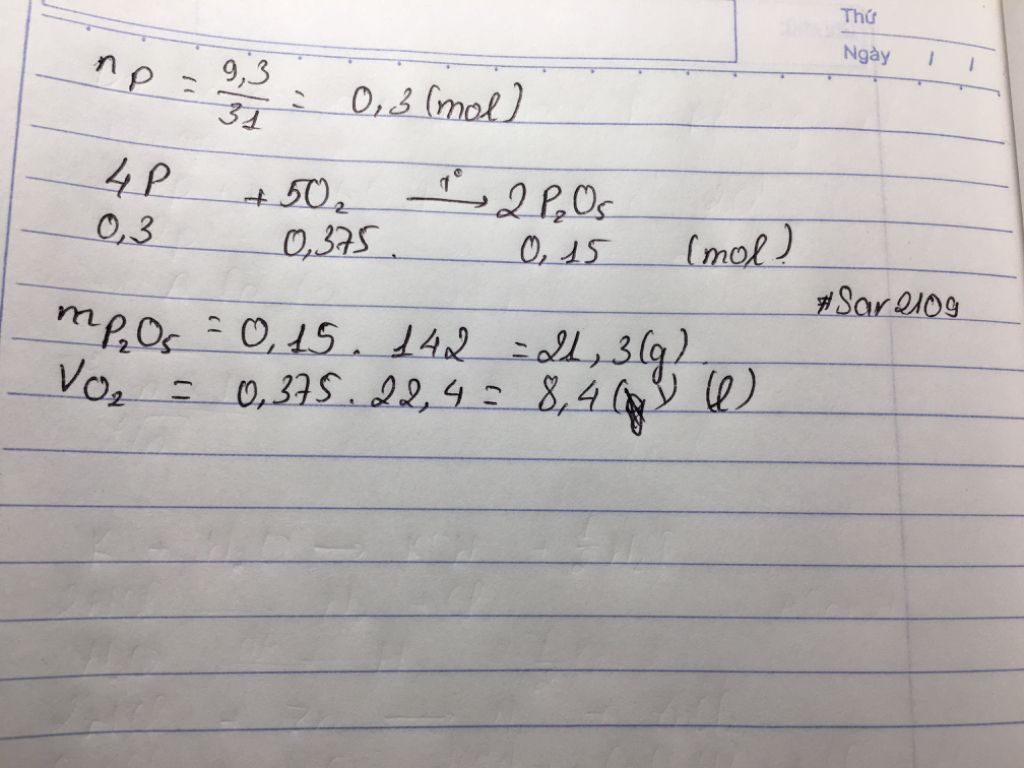 Thứ
Ngày / /
n P = 9,3/31 = 0,3 (mol)
4P + 5O₂ —t°→ 2P₂O₅
0,3 0,375. 0,15 (mol)
#Sar2109
mP₂O₅ = 0,15 . 142 = 21,3 (g).
VO₂ = 0,375 . 22,4 = 8,4 (l)